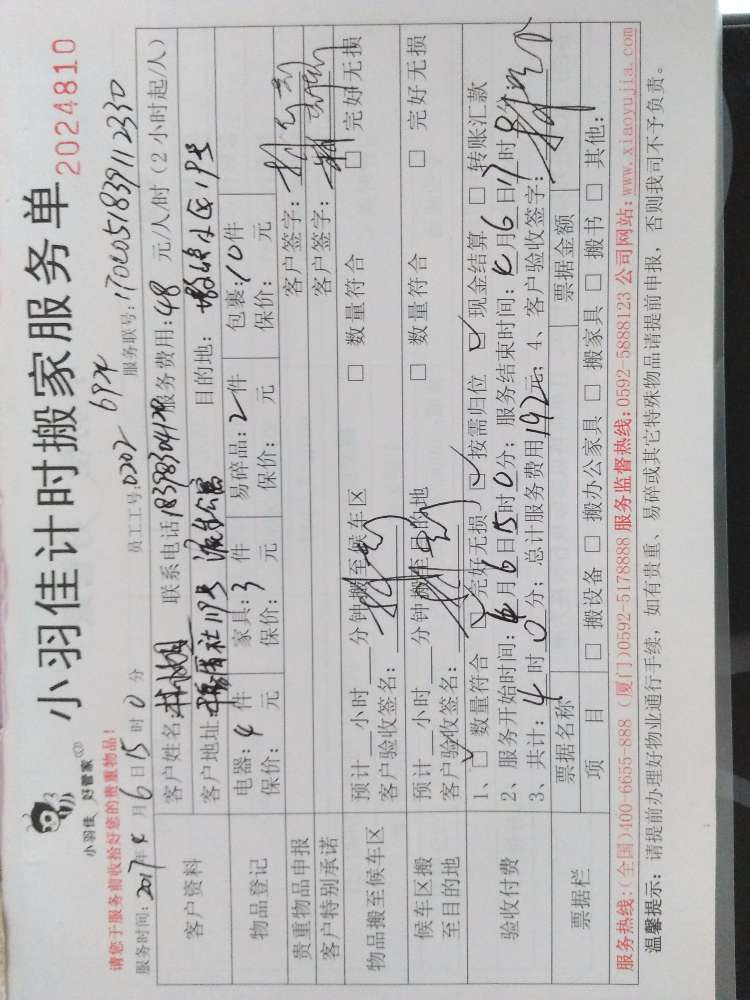 小羽佳计时搬家服务单
2024810
小羽佳 好管家
请您于服务前收拾好您的贵重物品!
服务时间: 2017年4月6日15时0分 员工工号: 0202 6924 服务联号:
客户资料
客户姓名: 联系电话: 服务费用: 48元/人/时(2小时起/人)
客户地址: 目的地:
物品登记
电器: 4件 家具: 3件 易碎品: 2件 包裹: 10件
保价: 元 保价: 元 保价: 元 保价: 元
贵重物品申报 客户签字:
客户特别承诺 客户签字:
物品搬至候车区
预计 小时 分钟搬至候车区 □ 数量符合 □ 完好无损
客户验收签名:
候车区搬至目的地
预计 小时 分钟搬至目的地 □ 数量符合 □ 完好无损
客户验收签名:
验收付费
1、□ 数量符合 □ 完好无损 □ 按需归位 □ 现金结算 □ 转账汇款
2、服务开始时间: 4月6日15时0分; 服务结束时间: 4月6日19时 分
3、共计: 4时0分; 总计服务费用192元; 4、客户验收签字:
票据栏
票据名称 票据金额
项 目 □ 搬设备 □ 搬办公家具 □ 搬家具 □ 搬书 □ 其他:
服务热线:(全国)400-6655-888 (厦门)0592-5178888 服务监督热线:0592-5888123 公司网站:www.xiaoyujia.com
温馨提示: 请提前办理好物业通行手续, 如有贵重、易碎或其它特殊物品请提前申报, 否则我司不予负责。